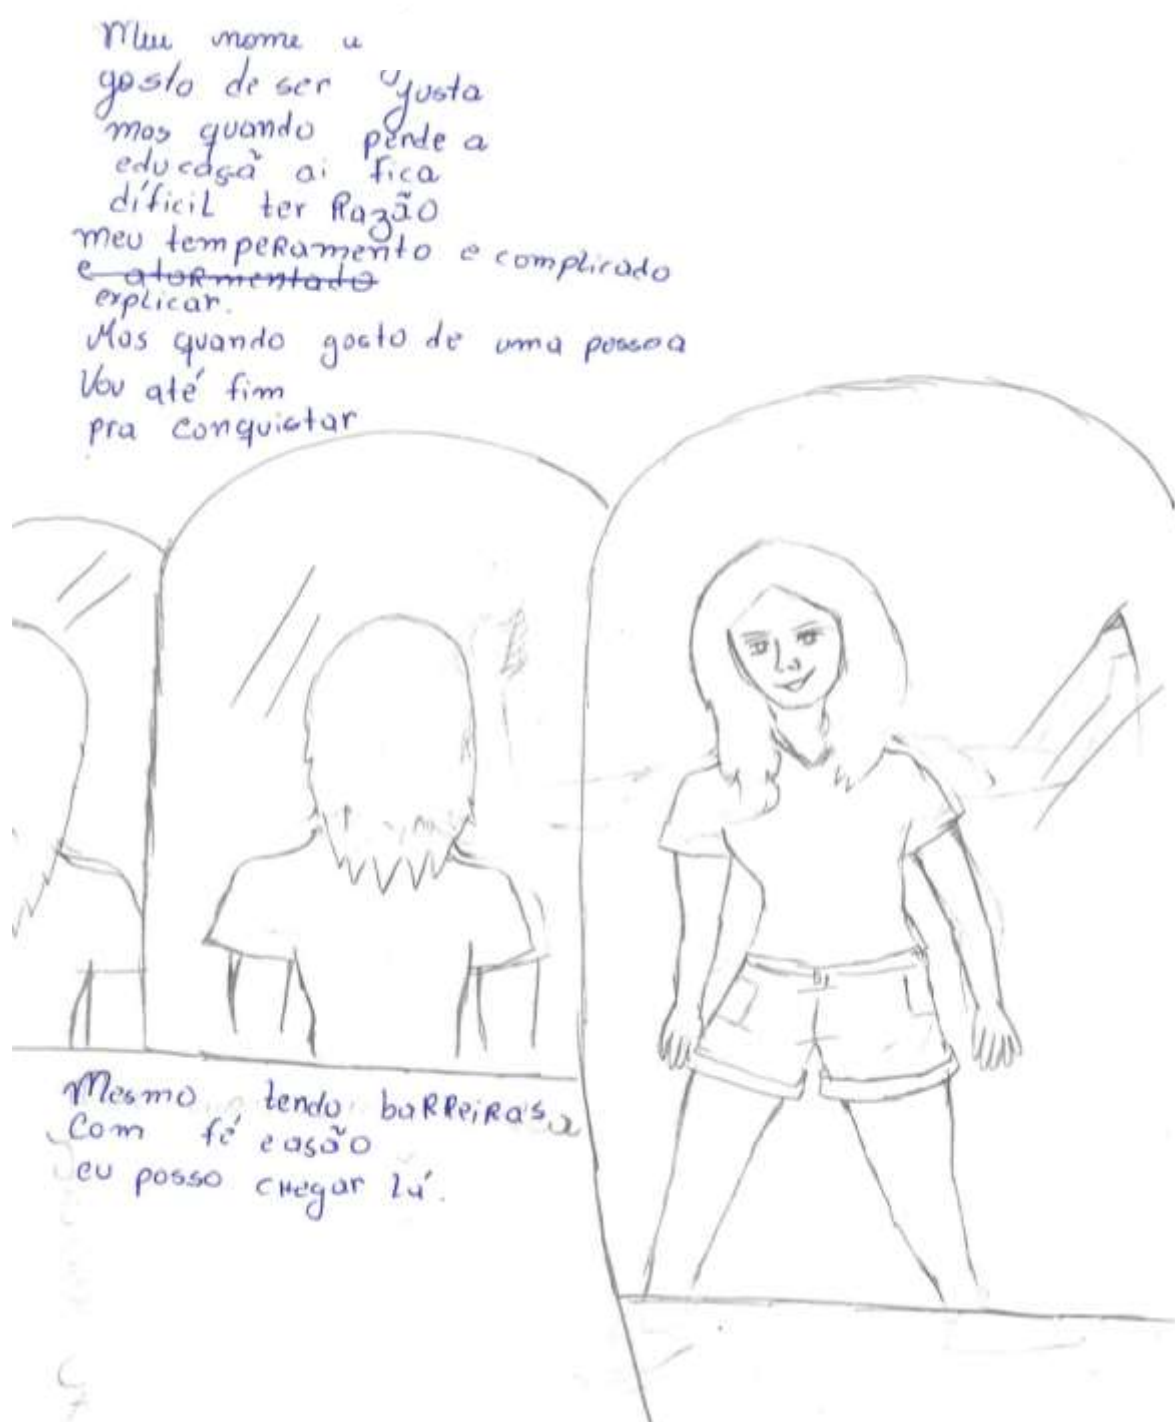 Meu nome e
gosto de ser justa
mas quando perde a
educasã ai fica
díficil ter Razão
meu temperamento e complicado
e atormentado
explicar.
Mas quando gosto de uma pessoa
Vou até fim
pra conquistar
Mesmo tendo barreiras
Com fé e asão
eu posso chegar lá.